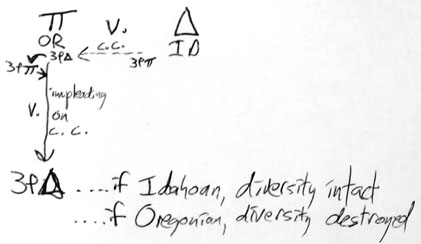 π V. Δ
OR c.c. ID
3PΔ 3Pπ
3Pπ
V. impleading
on
c.c.
3PΔ ....if Idahoan, diversity intact
....if Oregonian, diversity destroyed